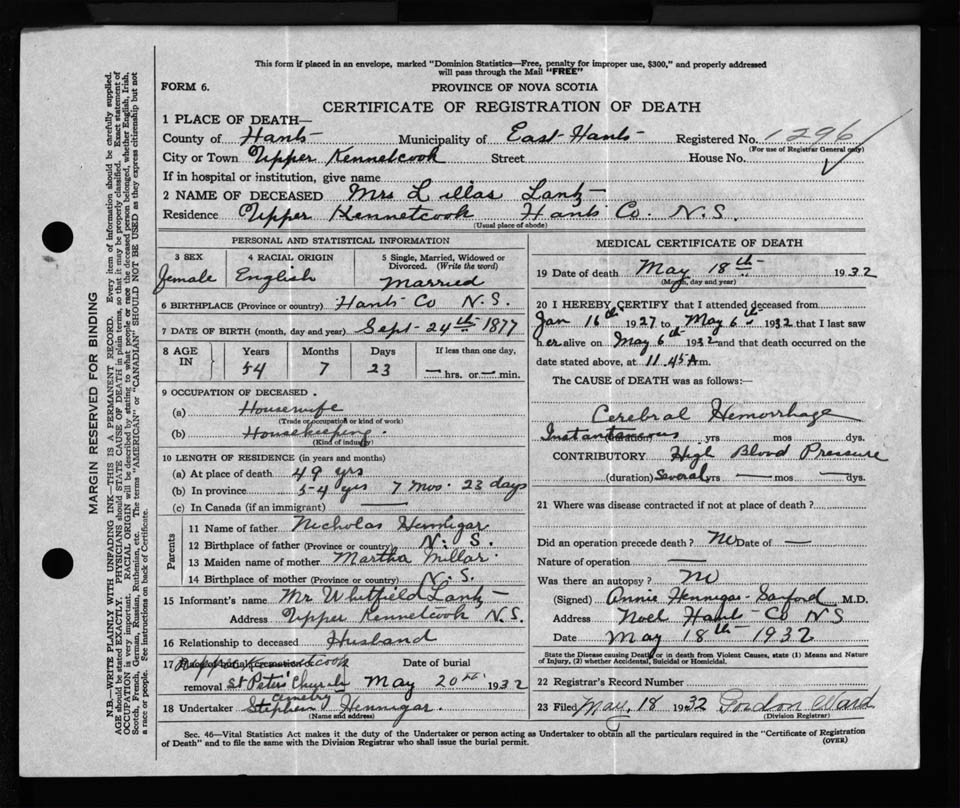 This form if placed in an envelope, marked "Dominion Statistics—Free, penalty for improper use, $300," and properly addressed
will pass through the Mail "FREE"
FORM 6.
PROVINCE OF NOVA SCOTIA
CERTIFICATE OF REGISTRATION OF DEATH
1 PLACE OF DEATH—
County of Hants Municipality of East Hants Registered No. 1296
(For use of Registrar General only)
City or Town Upper Kennetcook Street House No.
If in hospital or institution, give name
2 NAME OF DECEASED Mrs Lillas Lantz
Residence Upper Kennetcook Hants Co. N.S.
(Usual place of abode)
PERSONAL AND STATISTICAL INFORMATION
3 SEX 4 RACIAL ORIGIN 5 Single, Married, Widowed or
Divorced. (Write the word)
female English Married
6 BIRTHPLACE (Province or country) Hants Co N.S.
7 DATE OF BIRTH (month, day and year) Sept 24th 1877
8 AGE IN Years Months Days If less than one day,
54 7 23 — hrs. or — min.
9 OCCUPATION OF DECEASED .
(a) Housewife
(Trade or occupation or kind of work)
(b) Housekeeping.
(Kind of industry)
10 LENGTH OF RESIDENCE (in years and months)
(a) At place of death 49 yrs
(b) In province 54 yrs 7 mos. 23 days
(c) In Canada (if an immigrant) —
Parents
11 Name of father Nicholas Hennigar
12 Birthplace of father (Province or country) N. S.
13 Maiden name of mother Martha Millar
14 Birthplace of mother (Province or country) N. S.
15 Informant's name Mr Whitfield Lantz
Address Upper Kennetcook N.S.
16 Relationship to deceased Husband
17 Place of burial, cremation or Date of burial
Upper Kennetcook
removal St Peters Church May 20th 1932
Cemetry
18 Undertaker Stephen Hennigar.
(Name and address)
MEDICAL CERTIFICATE OF DEATH
19 Date of death May 18th 1932
(Month, day and year)
20 I HEREBY CERTIFY that I attended deceased from
Jan 16th 1927 to May 6th 1932 that I last saw
her alive on May 6th 1932 and that death occurred on the
date stated above, at 11.45 A m.
The CAUSE OF DEATH was as follows:
Cerebral Hemorrhage
Instantaneous yrs mos dys.
CONTRIBUTORY High Blood Pressure
(duration) Several yrs — mos — dys.
21 Where was disease contracted if not at place of death?
Did an operation precede death? No Date of —
Nature of operation —
Was there an autopsy? No
(Signed) Annie Hennigar-Sanford M.D.
Address Noel Hants Co N S
Date May 18th 1932
State the Disease Causing Death, or in death from Violent Causes, state (1) Means and Nature
of Injury, (2) whether Accidental, Suicidal or Homicidal.
22 Registrar's Record Number
23 Filed May 18 1932 Gordon Ward
(Division Registrar)
Sec. 46—Vital Statistics Act makes it the duty of the Undertaker or person acting as Undertaker to obtain all the particulars required in the "Certificate of Registration
of Death" and to file the same with the Division Registrar who shall issue the burial permit. (OVER)
MARGIN RESERVED FOR BINDING
N.B.—WRITE PLAINLY WITH UNFADING INK—THIS IS A PERMANENT RECORD. Every item of information should be carefully supplied.
AGE should be stated EXACTLY. PHYSICIANS should STATE CAUSE OF DEATH in plain terms, so that it may be properly classified. Exact statement of
OCCUPATION is very important. RACIAL ORIGIN will be described by stating to what people or race the deceased person belonged, whether English, Irish,
Scotch, French, German, Russian, Ruthenian, etc. The terms "AMERICAN" or "CANADIAN" SHOULD NOT BE USED as they express citizenship but not
a race or people. See instructions on back of Certificate.